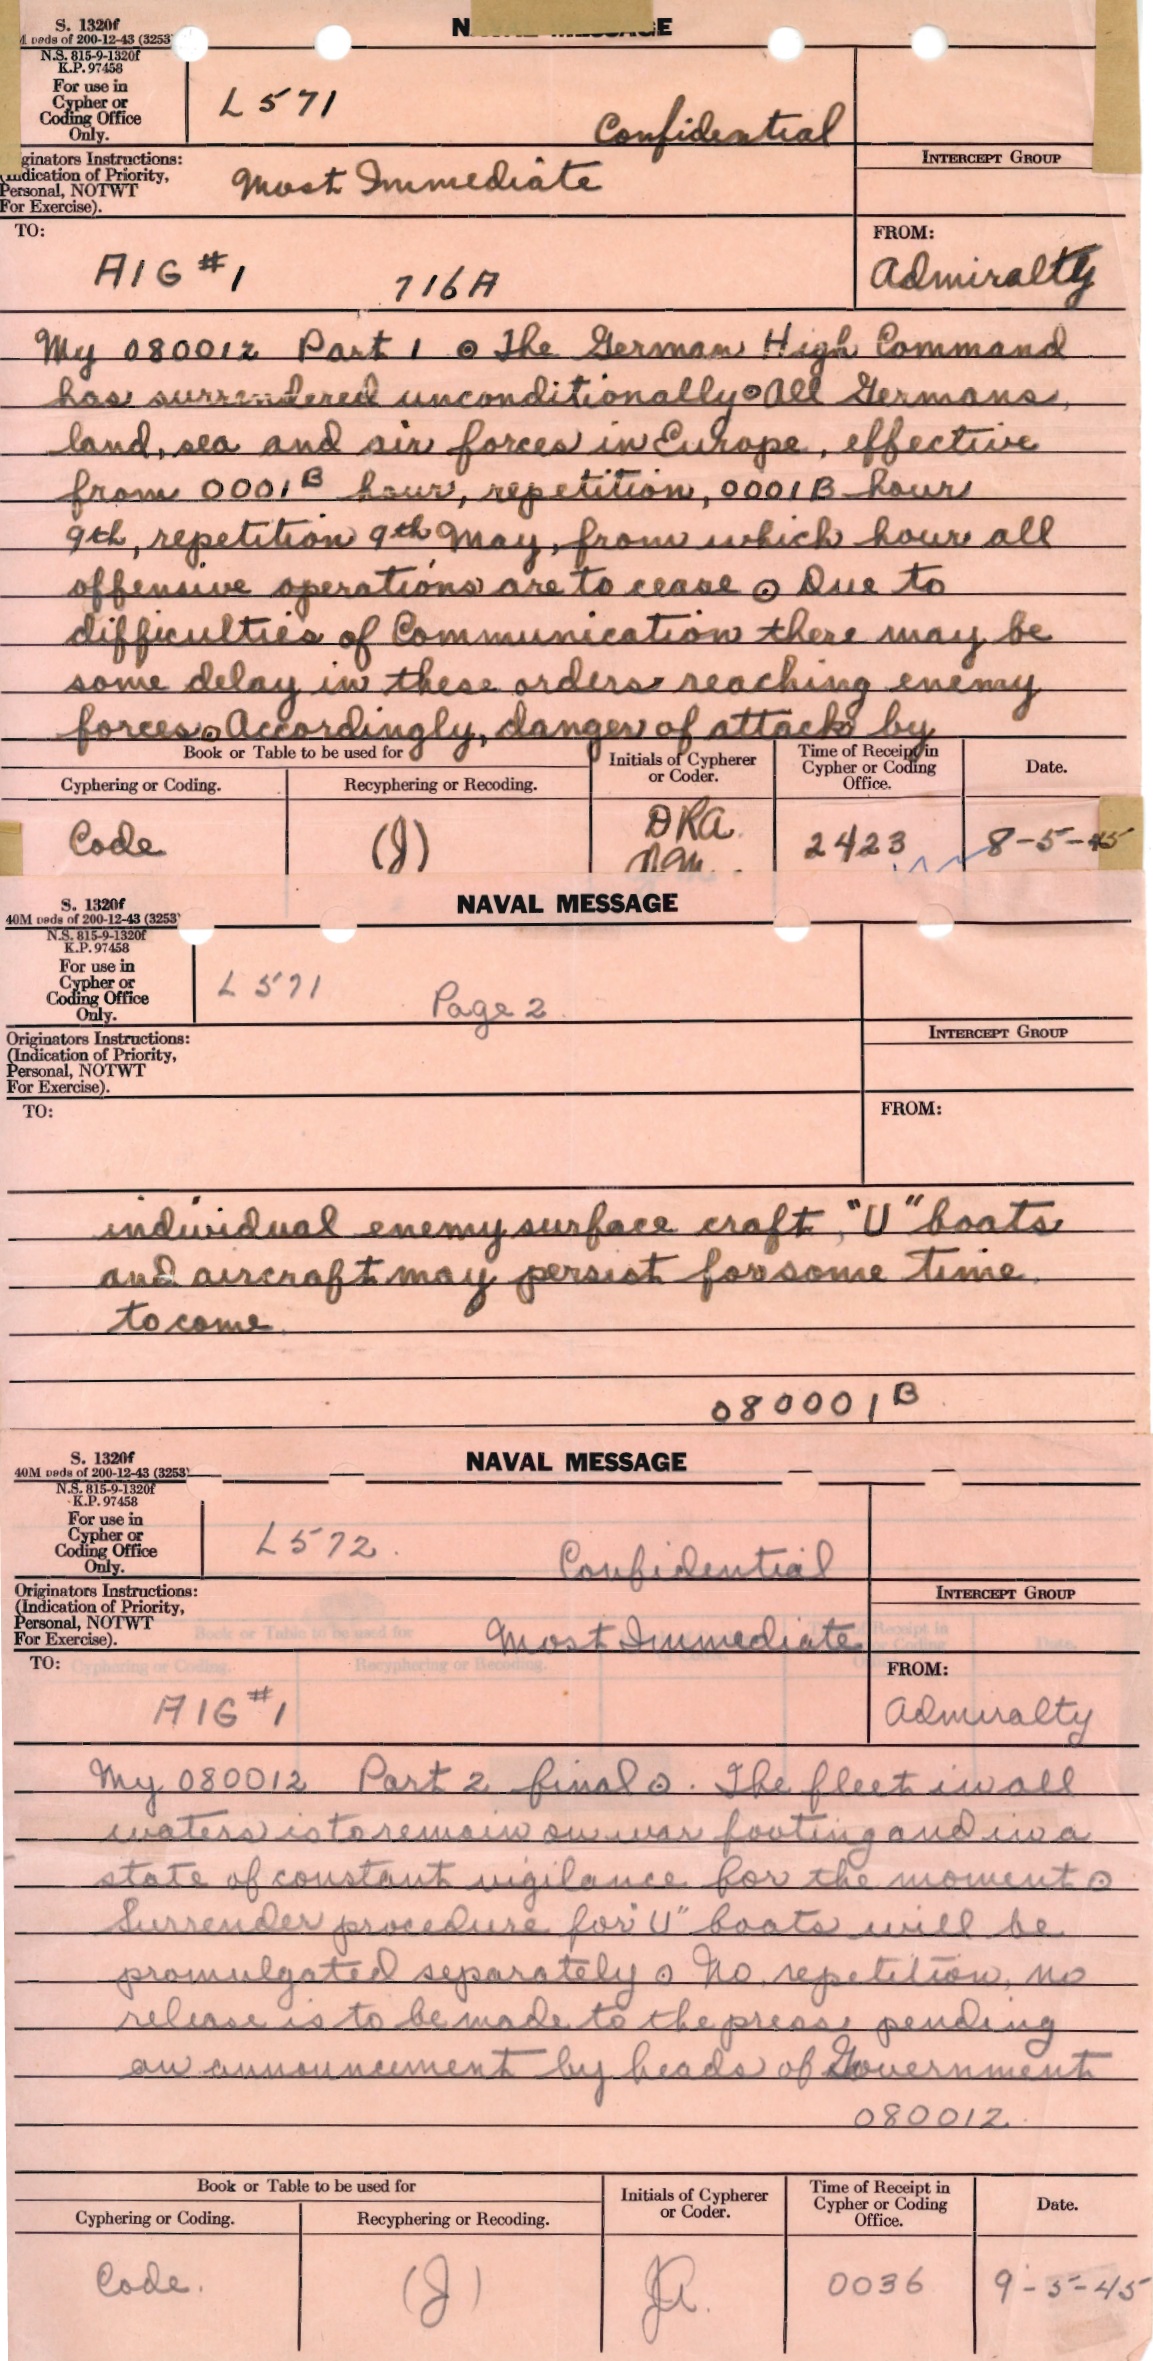 S. 1320f
M pads of 200-12-43 (3253)
N.S. 815-9-1320f
K.P. 97458
NAVAL MESSAGE
For use in
Cypher or
Coding Office
Only.
L571
Confidential
ginators Instructions:
(Indication of Priority,
Personal, NOTWT
For Exercise).
Most Immediate
INTERCEPT GROUP
TO:
AIG #1
716A
FROM:
Admiralty
My 080012 Part 1 ⊙ The German High Command
has surrendered unconditionally ⊙ All Germans,
land, sea and air forces in Europe, effective
from 0001B hour, repetition, 0001B hours
9th, repetition 9th May, from which hour all
offensive operations are to cease ⊙ Due to
difficulties of Communication there may be
some delay in these orders reaching enemy
forces ⊙ Accordingly, danger of attacks by
Book or Table to be used for
Cyphering or Coding.
Recyphering or Recoding.
Initials of Cypherer
or Coder.
Time of Receipt in
Cypher or Coding
Office.
Date.
Code
(J)
DRA.
2423
8-5-45
S. 1320f
40M pads of 200-12-43 (3253)
N.S. 815-9-1320f
K.P. 97458
NAVAL MESSAGE
For use in
Cypher or
Coding Office
Only.
L571
Page 2
Originators Instructions:
(Indication of Priority,
Personal, NOTWT
For Exercise).
INTERCEPT GROUP
TO:
FROM:
individual enemy surface craft, "U" boats
and aircraft may persist for some time
to come
080001B
S. 1320f
40M pads of 200-12-43 (3253)
N.S. 815-9-1320f
K.P. 97458
NAVAL MESSAGE
For use in
Cypher or
Coding Office
Only.
L572.
Confidential
Originators Instructions:
(Indication of Priority,
Personal, NOTWT
For Exercise).
Most Immediate
INTERCEPT GROUP
TO:
AIG #1
FROM:
Admiralty
My 080012 Part 2 final ⊙. The fleet in all
waters is to remain on war footing and in a
state of constant vigilance for the moment ⊙
Surrender procedure for "U" boats will be
promulgated separately ⊙ No, repetition, no
release is to be made to the press pending
an announcement by heads of Government
080012.
Book or Table to be used for
Cyphering or Coding.
Recyphering or Recoding.
Initials of Cypherer
or Coder.
Time of Receipt in
Cypher or Coding
Office.
Date.
Code.
(J)
JA.
0036
9-5-45